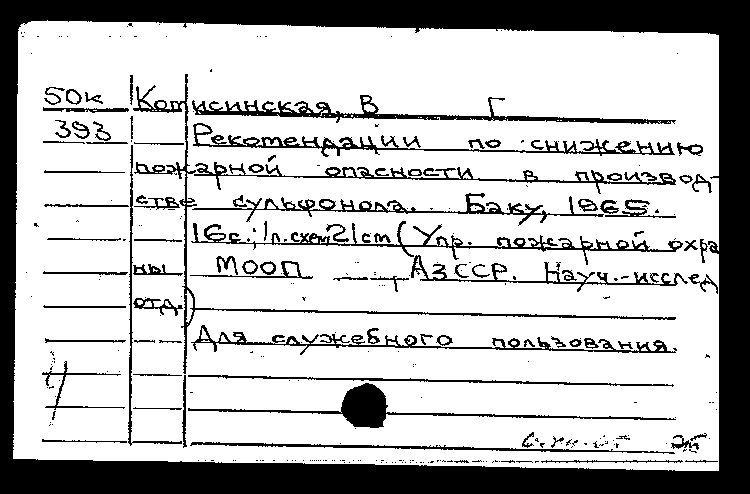 50к Котисинская, В Г
393 Рекотендации по снижению
пожарной опасности в производ-
стве сульфонола. Баку, 1965.
16с.; 1л.схем; 21см (Упр. пожарной охра
ны МООП АзССР. Науч.-исслед
отд.)
Для служебного пользования.